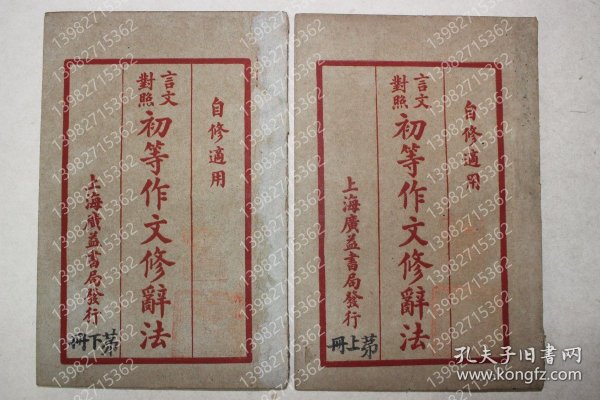 自修適用
言文
對照
初等作文修辭法
上海廣益書局發行
第上冊
自修適用
言文
對照
初等作文修辭法
上海廣益書局發行
第下冊
13982715362
孔夫子旧书网
www.kongfz.com